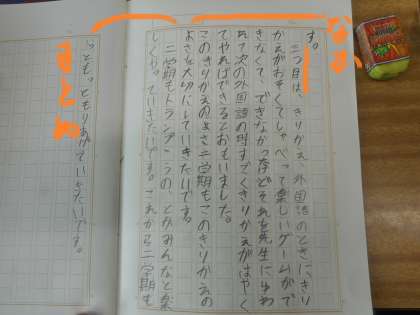 なか
まとめ
す。
三つ目は、きりかえ、外国語のときにきり
かえがおそくてしゃべって楽しいゲームがで
きなくて、できなかったなどそれを先生にいわ
れて次の外国語の時すごくきりかえがはやく
てやればできるとおもいました。
このきりかえのよさ二学期もこのきりかえの
よさを大切にしていきたいです。
二学期もトランプ
とかみんなと楽
しくやっていきたいです。これから二学期も
もっともりあげていきたいです。